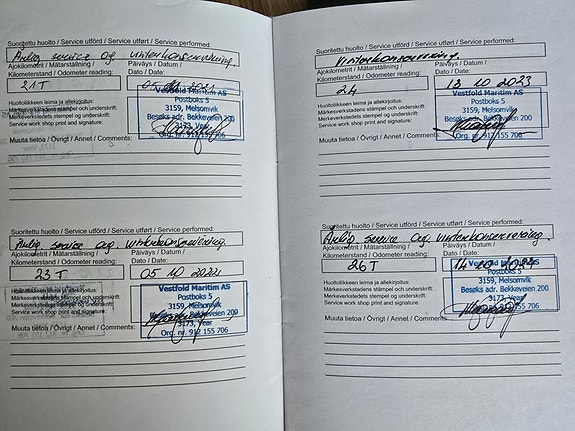 Suoritettu huolto / Service utförd / Service utført / Service performed:
Årlig service og vinterkonservering
Ajokilometrit / Mätarställning / Päiväys / Datum /
Kilometerstand / Odometer reading: Dato / Date:
21T
Huoltoliikkeen leima ja allekirjoitus:
Märkesverkstadens stämpel och underskrift:
Merkeverkstedets stempel og underskrift:
Service work shop print and signature:
Vestfold Maritim AS
Postboks 5
3159, Melsomvik
Besøks adr. Bekkeveien 200
3173, Vear
Org. nr. 912 155 706
Muuta tietoa / Övrigt / Annet / Comments:
Suoritettu huolto / Service utförd / Service utført / Service performed:
Årlig service og vinterkonservering.
Ajokilometrit / Mätarställning / Päiväys / Datum /
Kilometerstand / Odometer reading: Dato / Date:
23T 05 10 2022
Huoltoliikkeen leima ja allekirjoitus:
Märkesverkstadens stämpel och underskrift:
Merkeverkstedets stempel og underskrift:
Service work shop print and signature:
Vestfold Maritim AS
Postboks 5
3159, Melsomvik
Besøks adr. Bekkeveien 200
3173, Vear
Org. nr. 912 155 706
Muuta tietoa / Övrigt / Annet / Comments:
Suoritettu huolto / Service utförd / Service utført / Service performed:
Vinterkonservering
Ajokilometrit / Mätarställning / Päiväys / Datum /
Kilometerstand / Odometer reading: Dato / Date:
24 13 10 2023
Huoltoliikkeen leima ja allekirjoitus:
Märkesverkstadens stämpel och underskrift:
Merkeverkstedets stempel og underskrift:
Service work shop print and signature:
Vestfold Maritim AS
Postboks 5
3159, Melsomvik
Besøks adr. Bekkeveien 200
3173, Vear
Org. nr. 912 155 706
Muuta tietoa / Övrigt / Annet / Comments:
Suoritettu huolto / Service utförd / Service utført / Service performed:
Årlig service og vinterkonservering.
Ajokilometrit / Mätarställning / Päiväys / Datum /
Kilometerstand / Odometer reading: Dato / Date:
26T 14 10 2024
Huoltoliikkeen leima ja allekirjoitus:
Märkesverkstadens stämpel och underskrift:
Merkeverkstedets stempel og underskrift:
Service work shop print and signature:
Vestfold Maritim AS
Postboks 5
3159, Melsomvik
Besøks adr. Bekkeveien 200
3173, Vear
Org. nr. 912 155 706
Muuta tietoa / Övrigt / Annet / Comments: